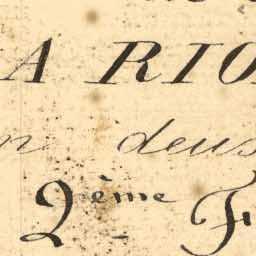 A RIO
deus
2ème F